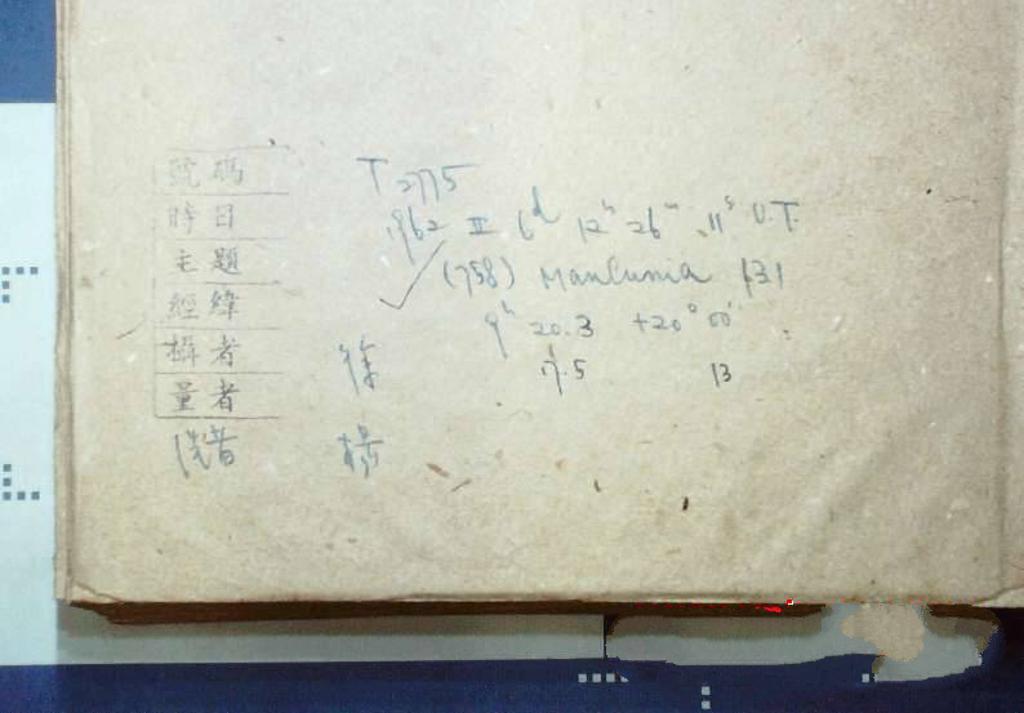 號碼 T 2775
時日 1962 III 6d 12h 26m 11s U.T.
主題 (758) Mancunia 131
經緯 9h 20.3 +20° 00'
攝者 徐 17.5 13
量者
洗者 楊